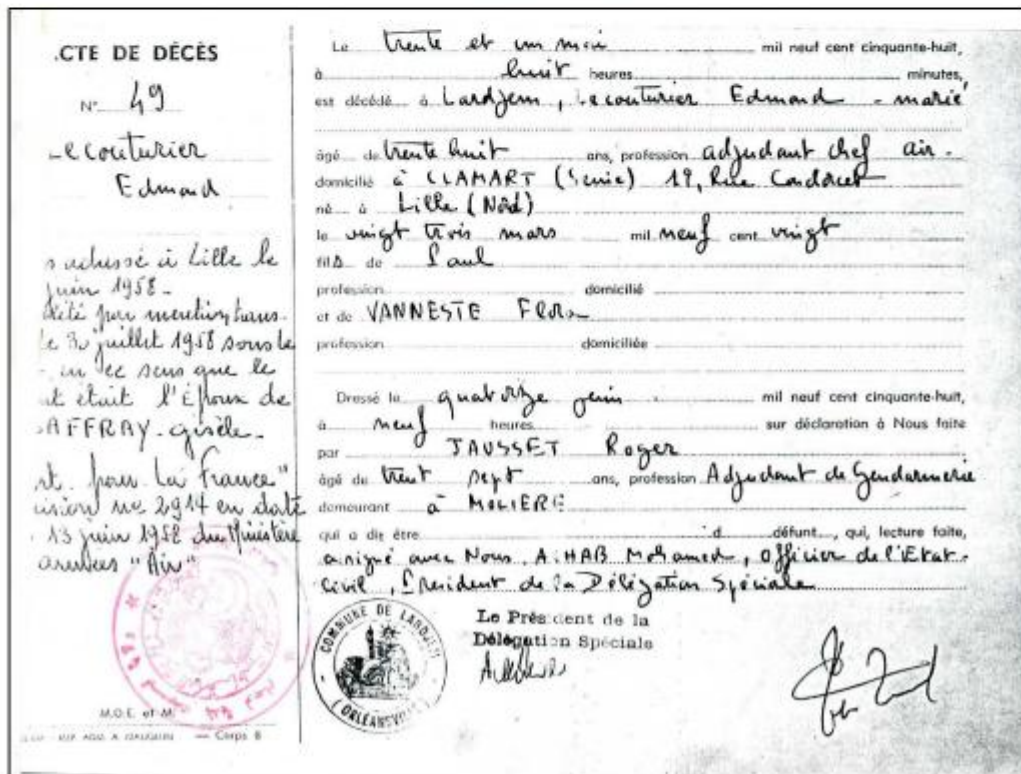 .CTE DE DÉCÈS
N° 49
Lecouturier
Edmond
s adressé à Lille le
juin 1958 -
lété par mention trans-
le 30 juillet 1958 sous le
en ce sens que le
nt était l'Époux de
AFFRAY - gisèle -
rt pour La France"
cision no 2914 en date
13 juin 1958 du Ministère
armées "Air"
M.O.E. et M.
— Corps 8
Le trente et un mai mil neuf cent cinquante-huit,
à huit heures minutes,
est décédé à Lardjem, Lecouturier Edmond - marié
âgé de trente huit ans, profession adjudant chef air -
domicilié à CLAMART (Seine) 19, Rue Condorcet
né à Lille (Nord)
le vingt trois mars mil neuf cent vingt
fils de Paul
profession domicilié
et de VANNESTE Flora
profession domiciliée
Dressé le quatorze juin mil neuf cent cinquante-huit,
à neuf heures sur déclaration à Nous faite
par JAUSSET Roger
âgé de trent sept ans, profession Adjudant de Gendarmerie
demeurant à MOLIERE
qui a dit être d défunt, qui, lecture faite,
a signé avec Nous, AIHAB Mohamed, Officier de l'Etat-
Civil, Président de la Délégation Spéciale
Le Président de la
Délégation Spéciale
COMMUNE DE LARDJEM
(ORLÉANSVILLE)